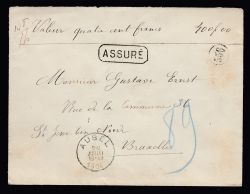 Valeur quatre cent francs 400f00
ASSURÉ
Monsieur Gustave Ernst
Rue de la Commune 36
St Josse ten Noode
Bruxelles
AUBEL
89